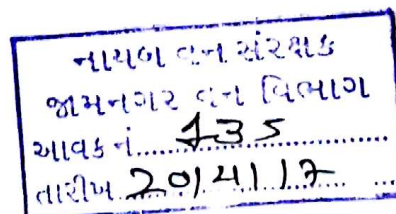 નાયબ વન સંરક્ષક
જામનગર વન વિભાગ
આવક નં......135..........
તારીખ 20/4/17 ...